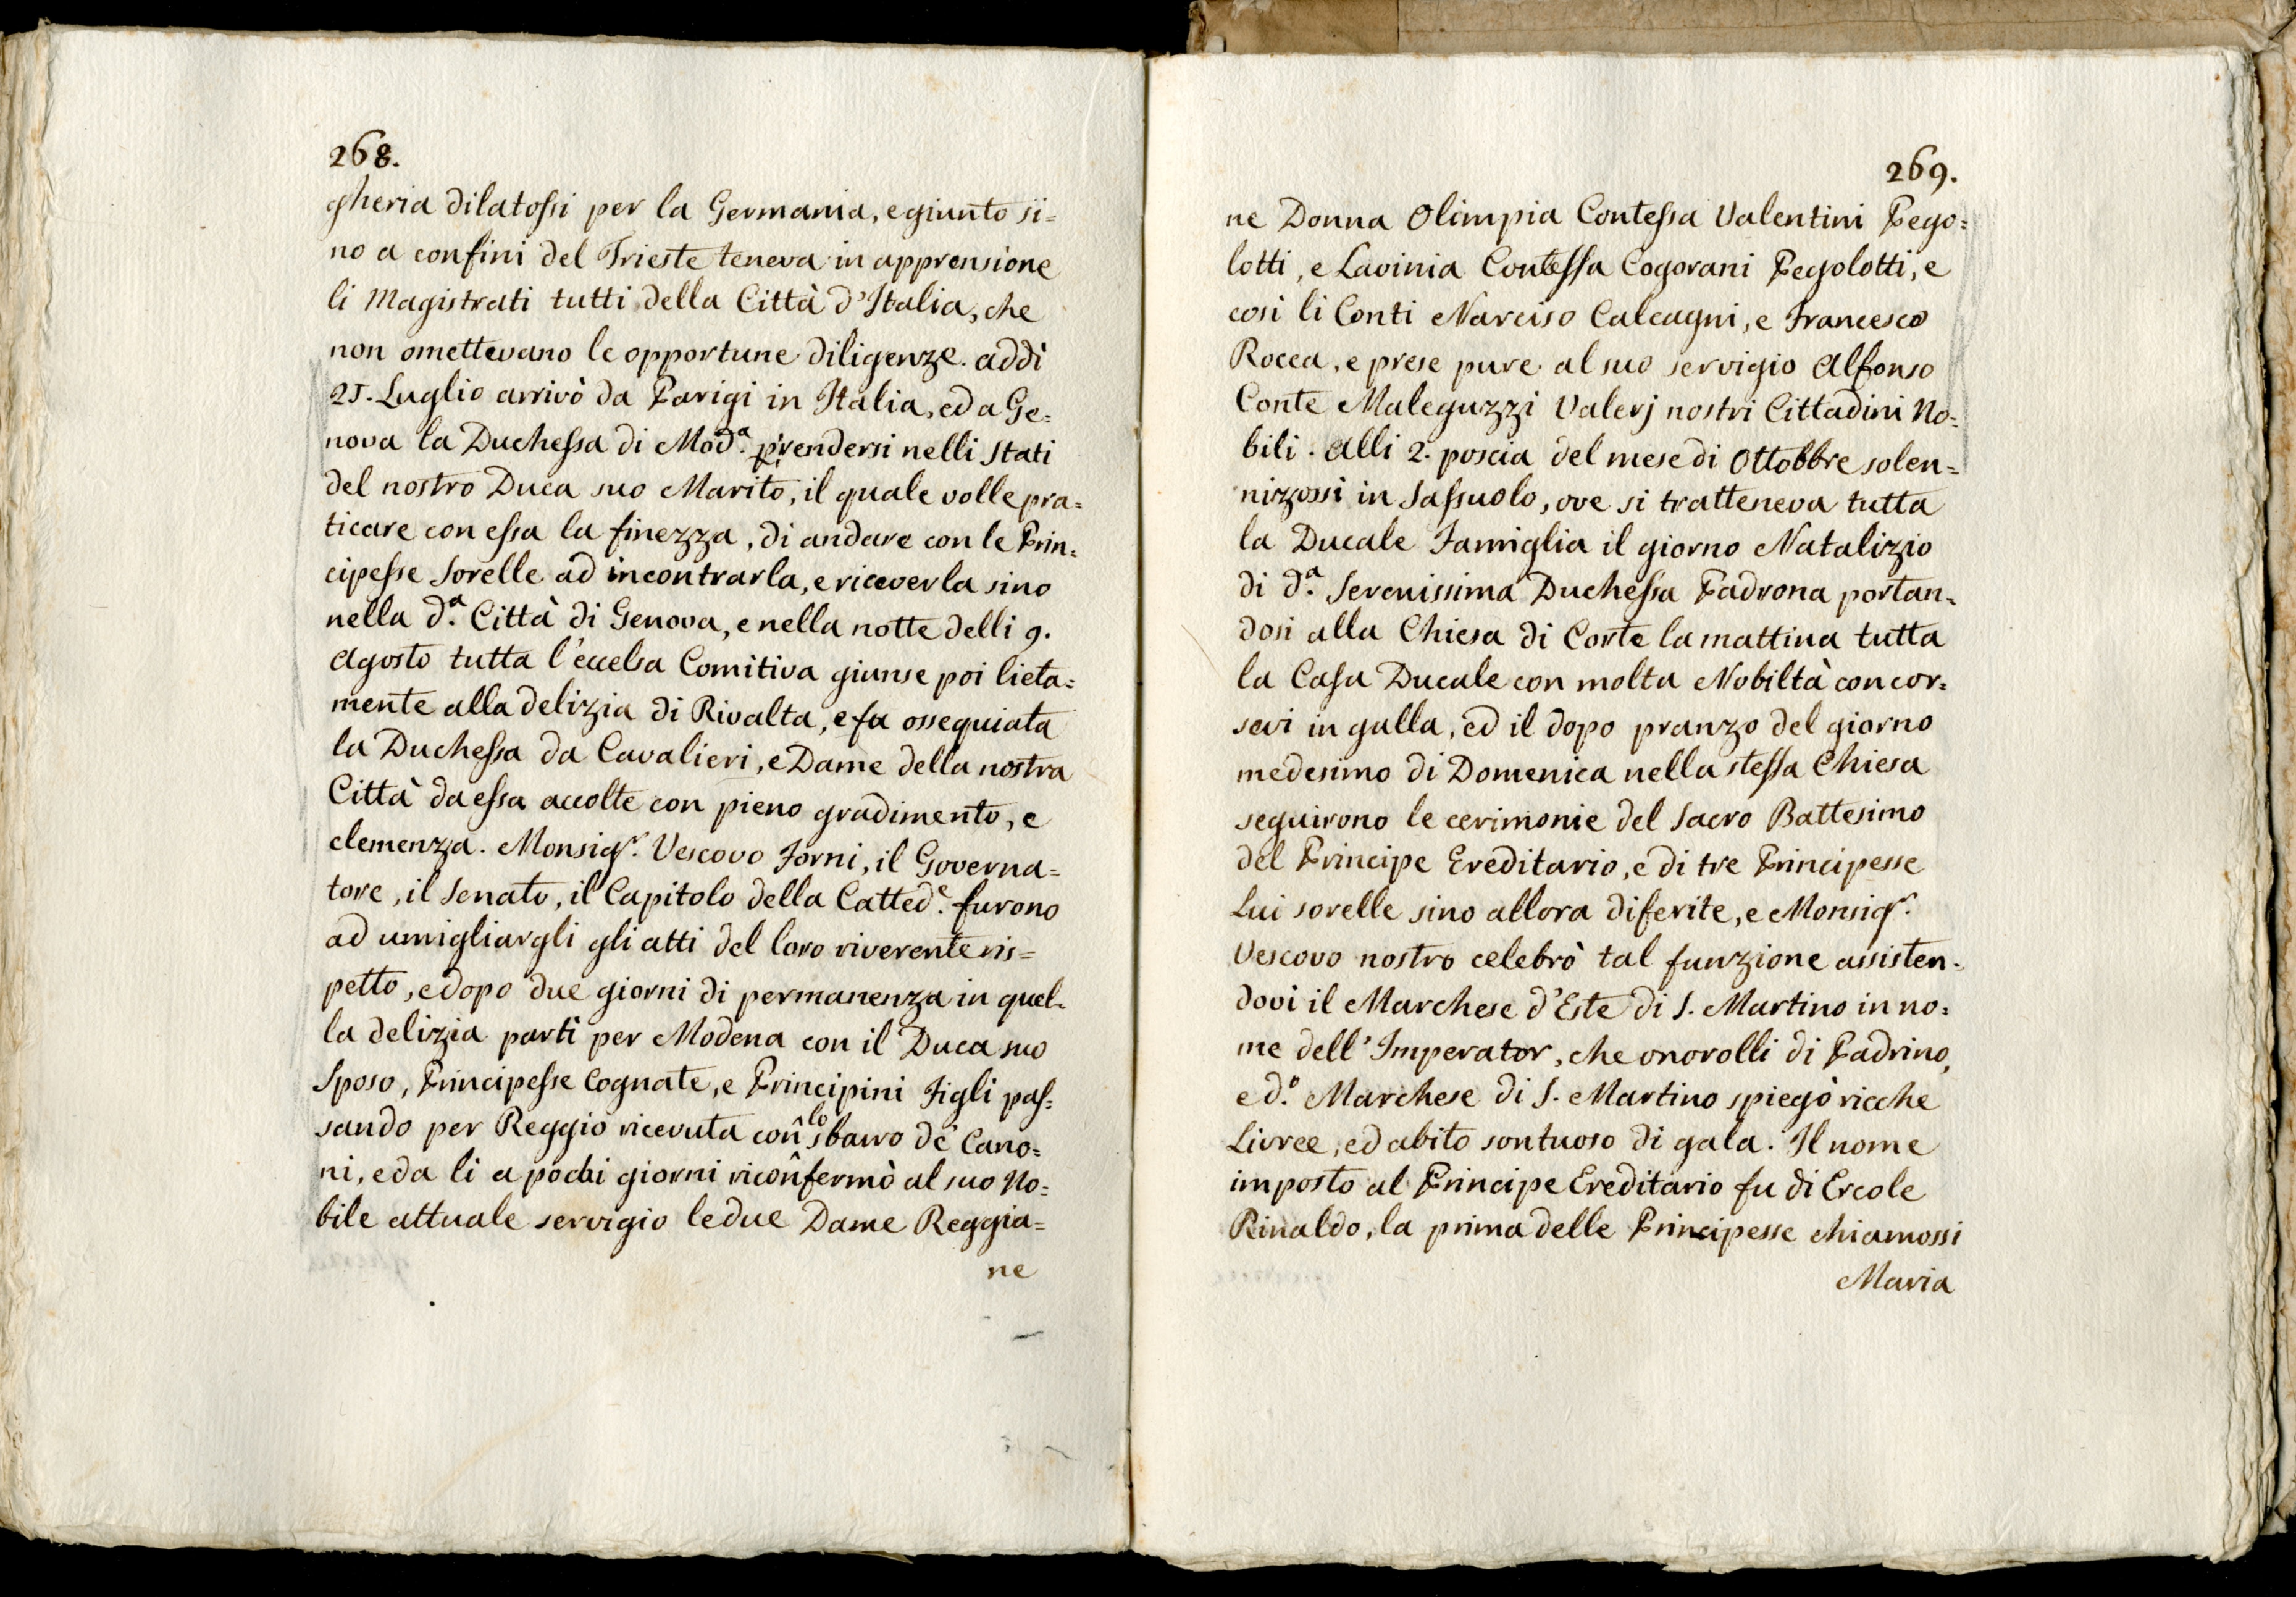 268.
gheria dilatossi per la Germania, e giunto si=
no a confini del Trieste teneva in apprensione
li Magistrati tutti della Città d'Italia, che
non omettevano le opportune diligenze. addì
25. Luglio arrivò da Parigi in Italia, ed a Ge=
nova la Duchessa di Mod.ª prendersi nelli Stati
del nostro Duca suo Marito, il quale volle pra=
ticare con essa la finezza, di andare con le Prin=
cipesse Sorelle ad incontrarla, e riceverla sino
nella d.ª Città di Genova, e nella notte delli 9.
Agosto tutta l'eccelsa Comitiva giunse poi lieta=
mente alla delizia di Rivalta, e fu ossequiata
la Duchessa da Cavalieri, e Dame della nostra
Città da essa accolte con pieno gradimento, e
clemenza. Monsig.r Vescovo Forni, il Governa=
tore, il Senato, il Capitolo della Catted.e furono
ad umigliargli gli atti del loro riverente ris=
petto, e dopo due giorni di permanenza in quel=
la delizia partì per Modena con il Duca suo
Sposo, Principesse Cognate, e Principini Figli pas=
sando per Reggio ricevuta coñ lo sbarro de' Cano=
ni, e da li a pochi giorni ricoñfermò al suo No=
bile attuale servigio le due Dame Reggia=
ne
269.
ne Donna Olimpia Contessa Valentini Pego=
lotti, e Lavinia Contessa Cogorani Pegolotti, e
così li Conti Narciso Calcagni, e Francesco
Rocca, e prese pure al suo servigio Alfonso
Conte Maleguzzi Valerj nostri Cittadini No=
bili. Alli 2. poscia del mese di Ottobbre solen=
nizzossi in Sassuolo, ove si tratteneva tutta
la Ducale Famiglia il giorno Natalizio
di d.ª Serenissima Duchessa Padrona portan=
dosi alla Chiesa di Corte la mattina tutta
la Casa Ducale con molta Nobiltà concor=
sevi in galla, ed il dopo pranzo del giorno
medesimo di Domenica nella stessa Chiesa
seguirono le cerimonie del Sacro Battesimo
del Principe Ereditario, e di tre Principesse
Lui sorelle sino allora diferite, e Monsig.r
Vescovo nostro celebrò tal funzione assisten=
dovi il Marchese d'Este di S. Martino in no=
me dell'Imperator, che onorolli di Padrino,
e d.º Marchese di S. Martino spiegò ricche
Livree, ed abito sontuoso di gala. Il nome
imposto al Principe Ereditario fu di Ercole
Rinaldo, la prima delle Principesse chiamossi
Maria